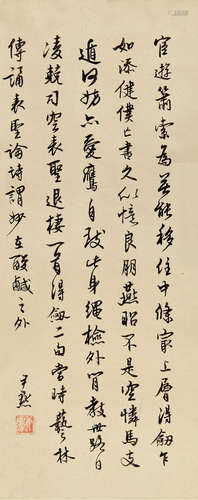 宦遊蕭索為無能移住中條最上層得劒乍
如添健僕亡書久似憶良朋燕昭不是空憐馬支
遁何妨亦愛鷹自致此身繩檢外肯教世路日
凌兢司空表聖退棲一首得劒二句當時藝林
傳誦表聖論詩謂妙在酸鹹之外
尹默